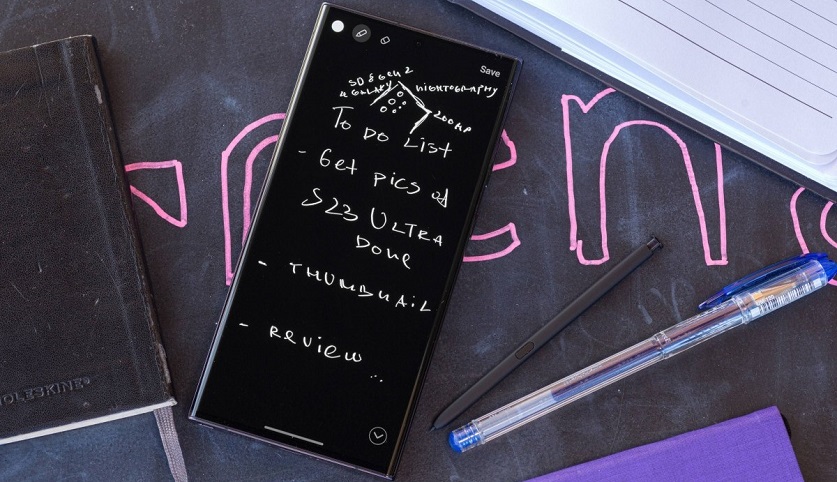 Save
SD 8 Gen 2
4 GALAXY
NIGHTOGRAPHY
200MP
To Do List
- Get pics of
S23 ULTRA
DONE
- THUMBNAIL
- Review...
MOLESKINE®